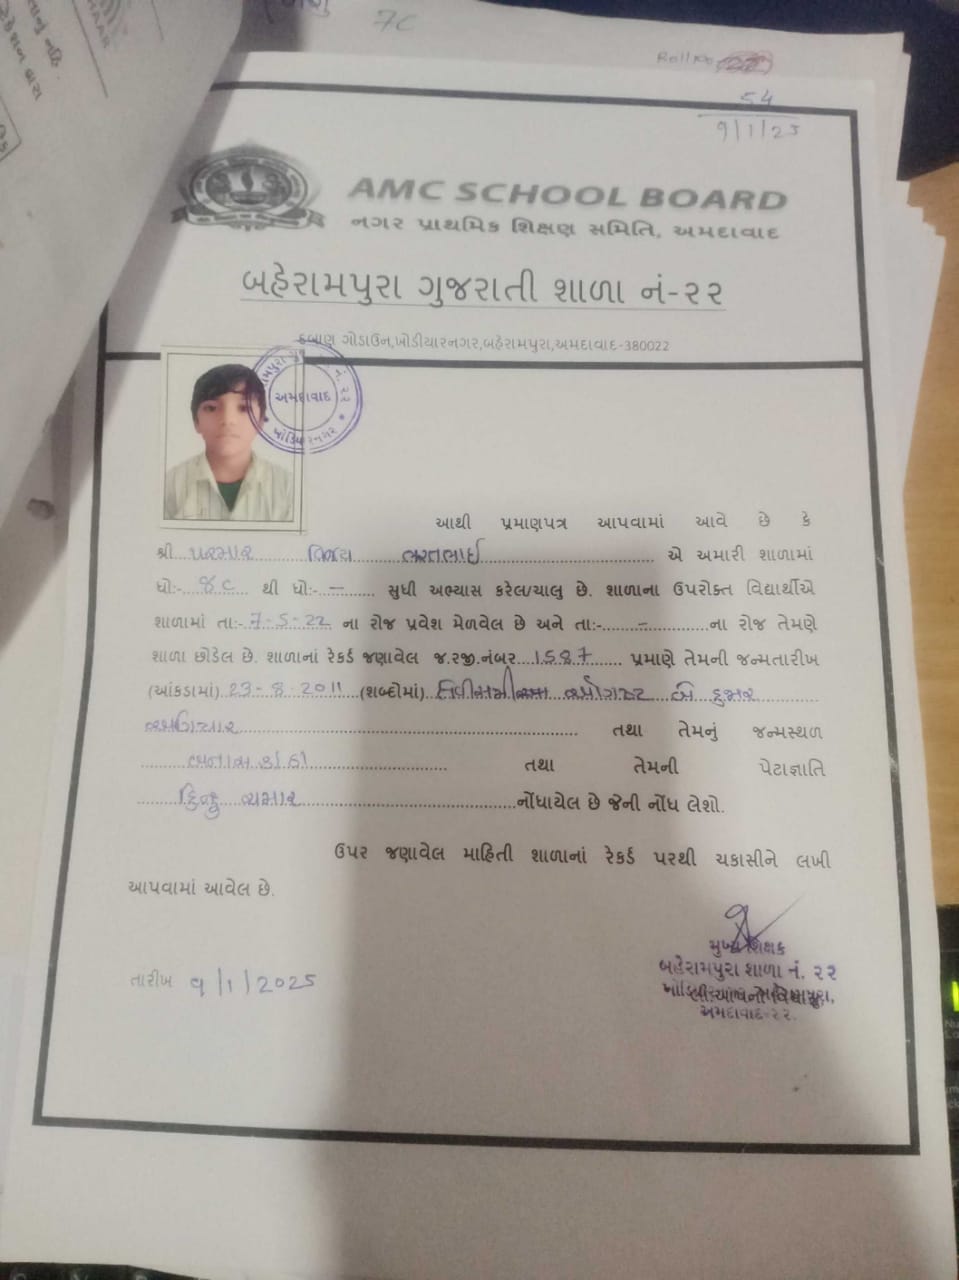 7C
Roll no
54
9/1/25
AMC SCHOOL BOARD
નગર પ્રાથમિક શિક્ષણ સમિતિ, અમદાવાદ
બહેરામપુરા ગુજરાતી શાળા નં-૨૨
દબાણ ગોડાઉન,ખોડીયારનગર,બહેરામપુરા,અમદાવાદ-380022
અમદાવાદ
ખોડિયારનગર
આથી પ્રમાણપત્ર આપવામાં આવે છે કે
શ્રી પરમાર વિજય ભરતભાઈ એ અમારી શાળામાં
ધો:- 7C થી ધો:- - સુધી અભ્યાસ કરેલ/ચાલુ છે. શાળાના ઉપરોક્ત વિદ્યાર્થીએ
શાળામાં તા:- 7-5-22 ના રોજ પ્રવેશ મેળવેલ છે અને તા:- - ના રોજ તેમણે
શાળા છોડેલ છે. શાળાનાં રેકર્ડ જણાવેલ જ.રજી.નંબર 1587 પ્રમાણે તેમની જન્મતારીખ
(આંકડામાં) 23-8-2011 (શબ્દોમાં) ઓગસ્ટ બે હજાર
અગિયાર તથા તેમનું જન્મસ્થળ
બનાસકાંઠા તથા તેમની પેટાજ્ઞાતિ
હિન્દુ ચમાર નોંધાયેલ છે જેની નોંધ લેશો.
ઉપર જણાવેલ માહિતી શાળાનાં રેકર્ડ પરથી ચકાસીને લખી
આપવામાં આવેલ છે.
મુખ્ય શિક્ષક
બહેરામપુરા શાળા નં. ૨૨
અમદાવાદ-૨૨.
તારીખ 9/1/2025